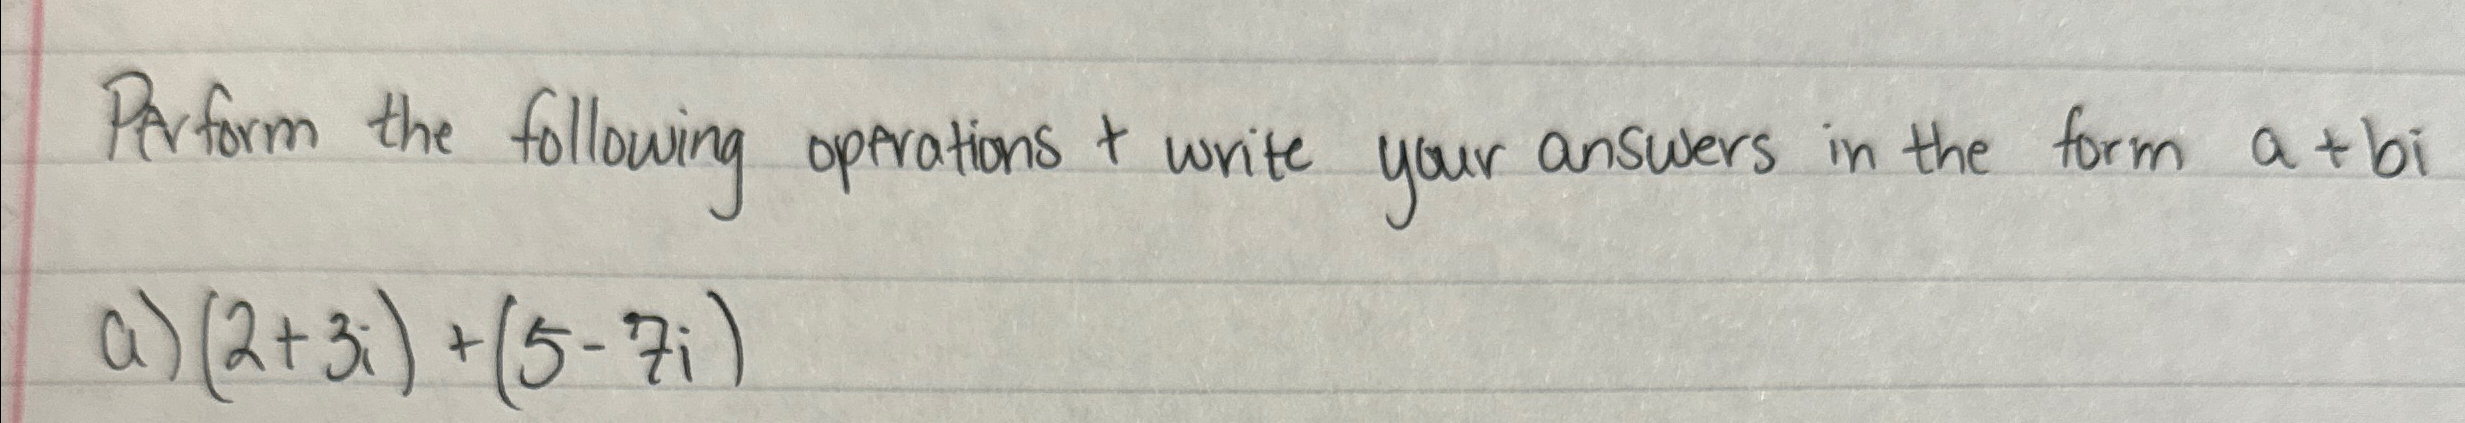 Perform the following operations + write your answers in the form a + bi
a) (2+3i) + (5-7i)